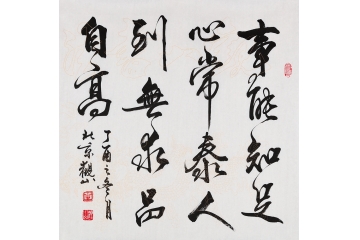 事能知足
心常泰人
到無求品
自高
丁酉之冬月
北京觀山